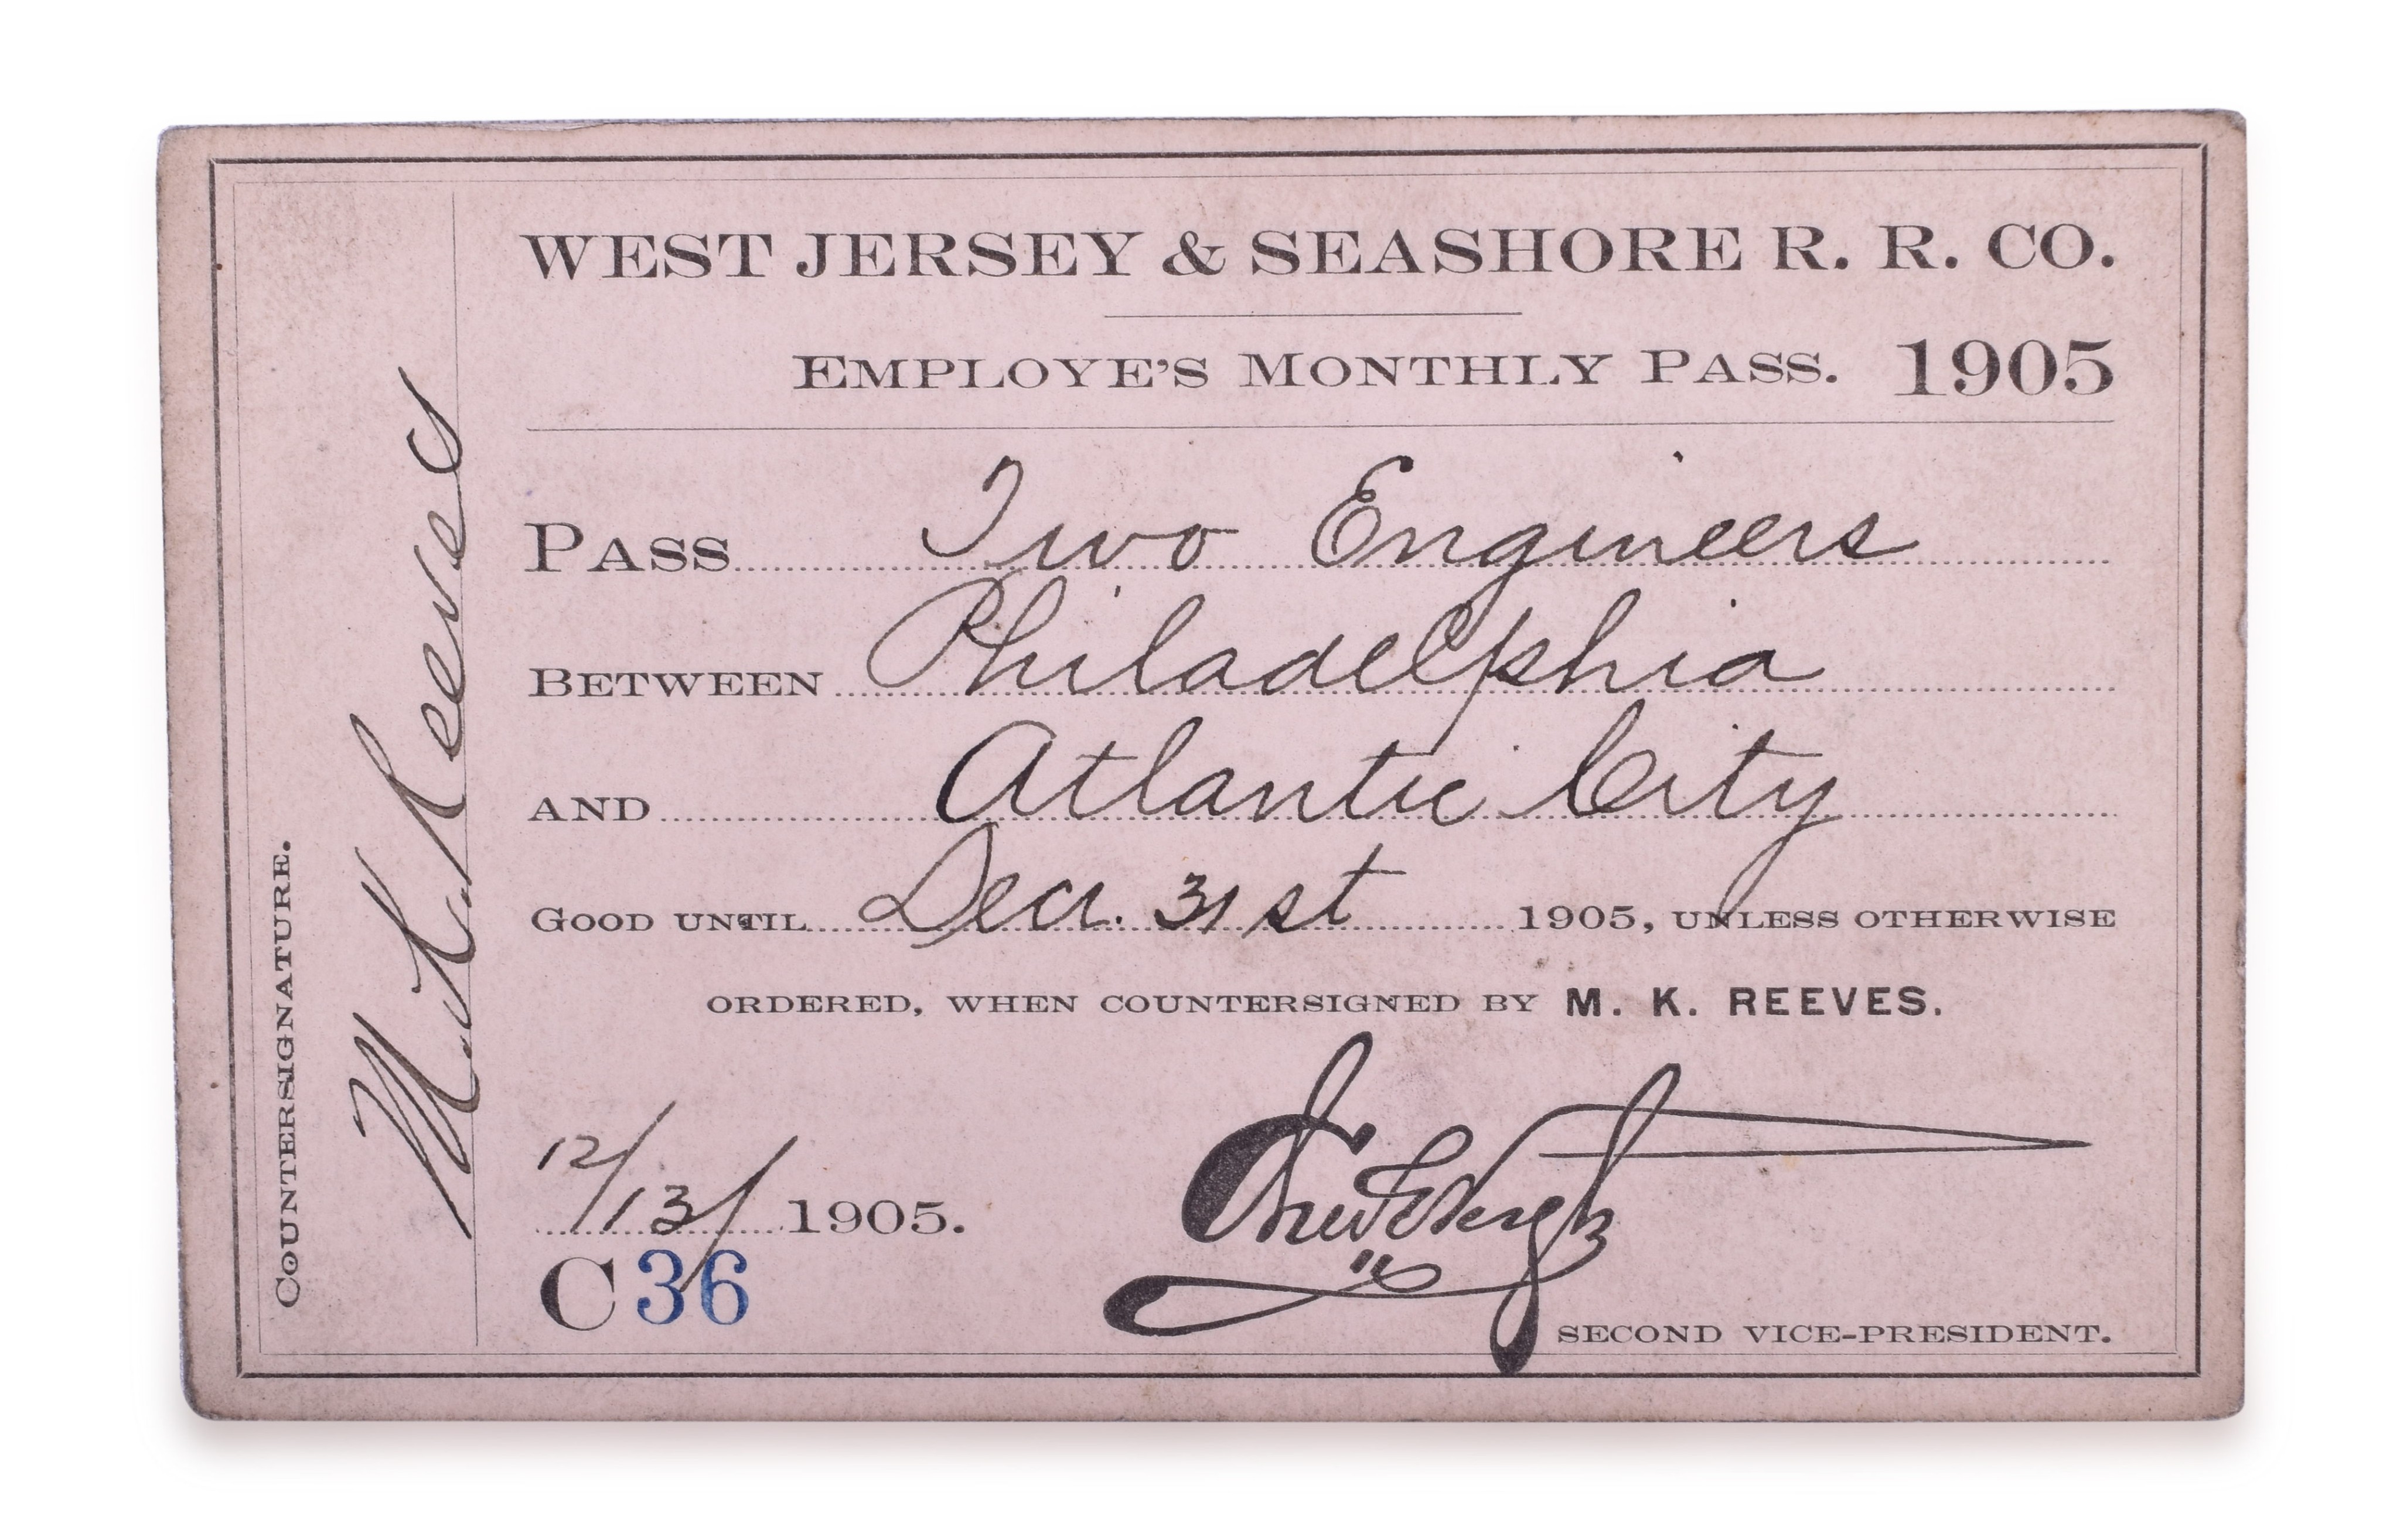 WEST JERSEY & SEASHORE R. R. CO.
EMPLOYE'S MONTHLY PASS. 1905
PASS Two Engineers
BETWEEN Philadelphia
AND Atlantic City
GOOD UNTIL Decr. 31st 1905, UNLESS OTHERWISE
ORDERED, WHEN COUNTERSIGNED BY M. K. REEVES.
12/13/ 1905.
C 36
SECOND VICE-PRESIDENT.
COUNTERSIGNATURE.
M. K. Reeves